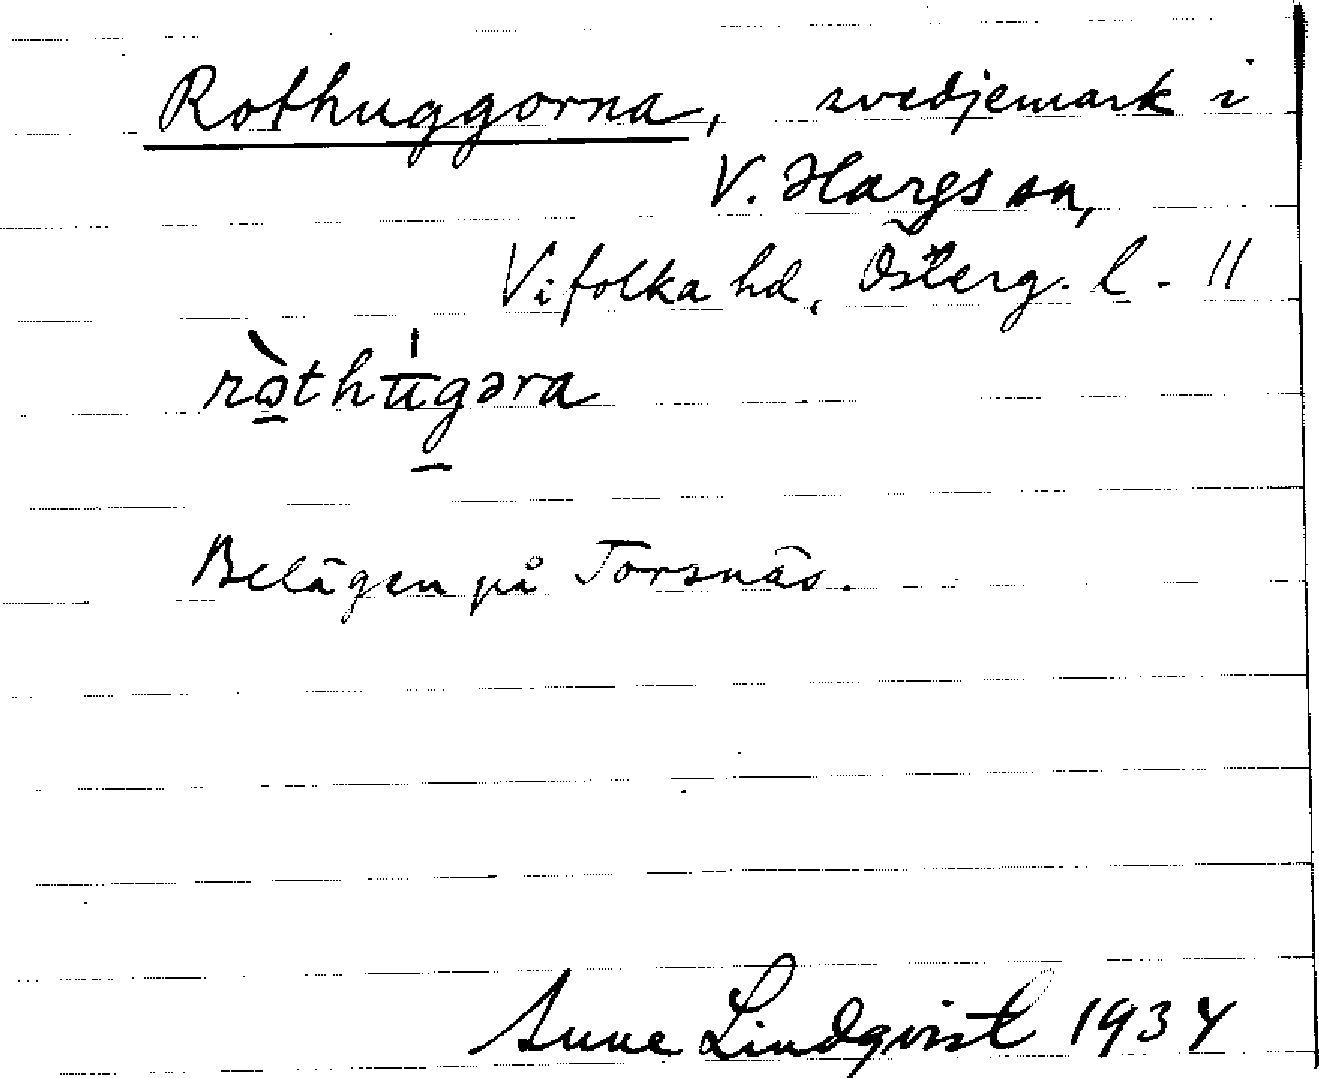 Rothuggorna, svedjemark i
V. Hargs sn,
Vifolka hd, Österg. l. 11
ròthu̅gəra
Belägen på Torsnäs.
Sune Lindqvist 1934